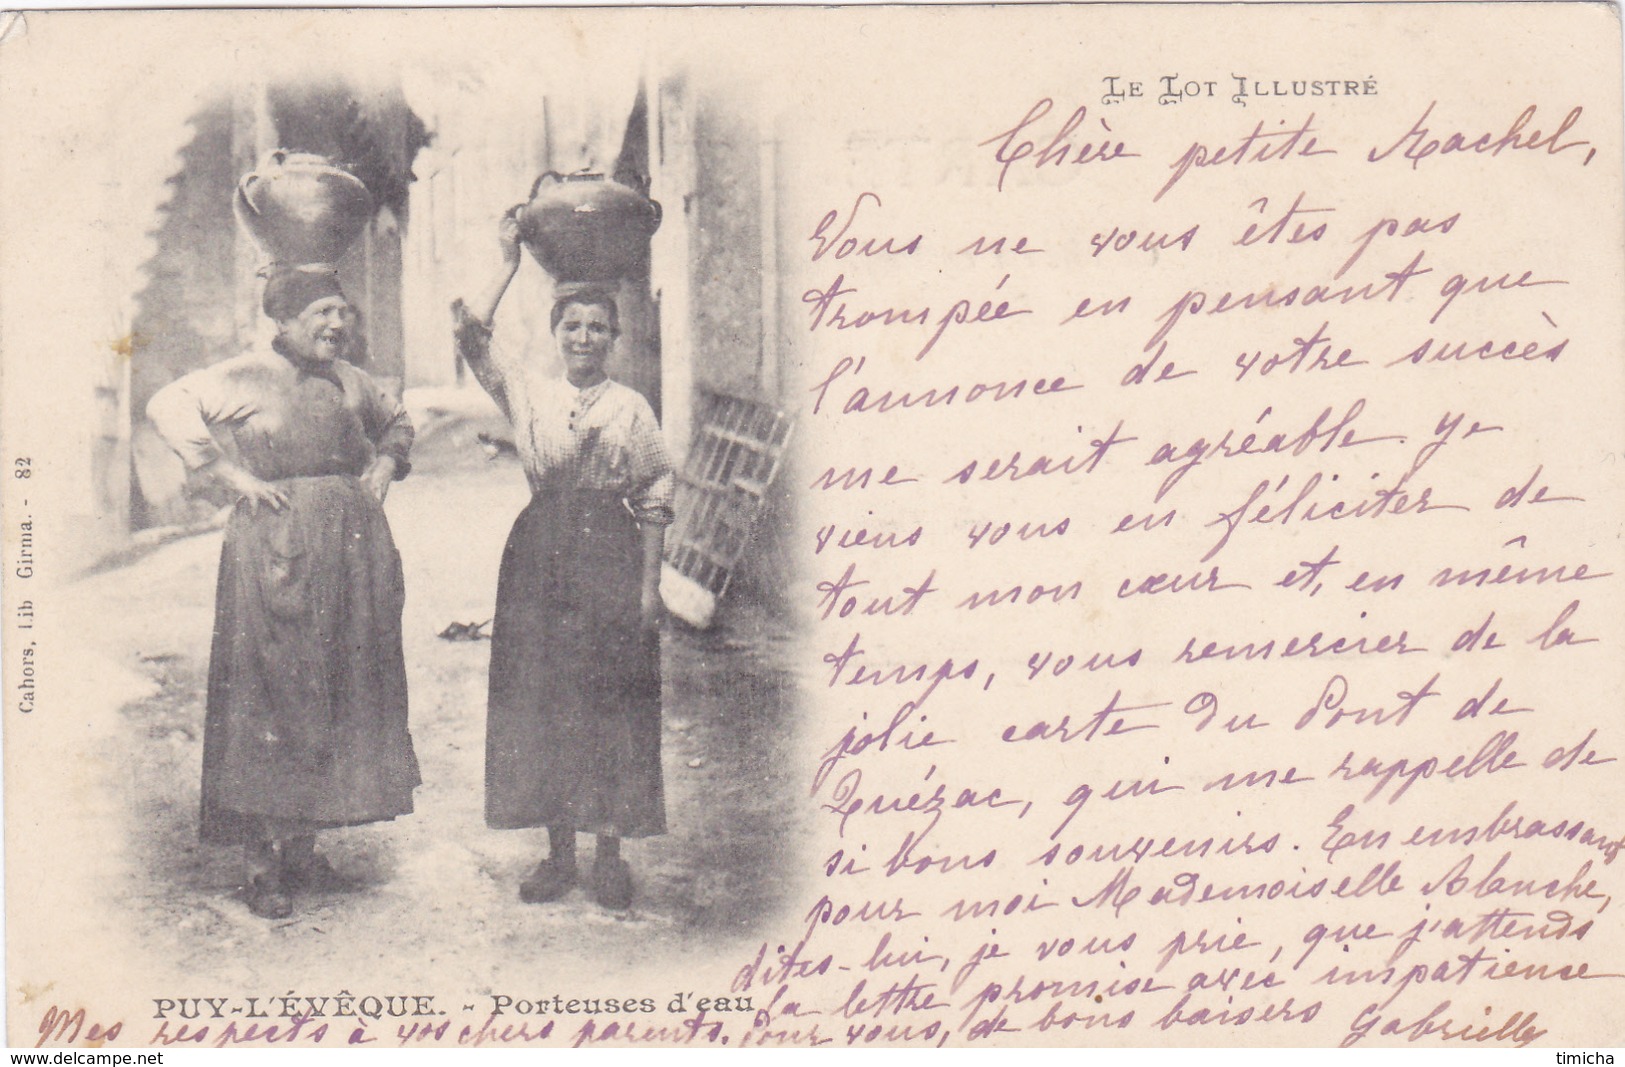 LE LOT ILLUSTRÉ
Chère petite Rachel,
Vous ne vous êtes pas
trompée en pensant que
l'annonce de votre succès
me serait agréable. Je
viens vous en féliciter de
tout mon cœur et, en même
temps, vous remercier de la
jolie carte du Pont de
Quézac, qui me rappelle de
si bons souvenirs. En embrassant
pour moi Mademoiselle Blanche,
dites-lui, je vous prie, que j'attends
sa lettre promise avec impatience
Pour vous, de bons baisers Gabrielle
Mes respects à vos chers parents.
PUY-L'ÉVÊQUE. - Porteuses d'eau
Cahors, Lib Girma. - 82
www.delcampe.net
timicha